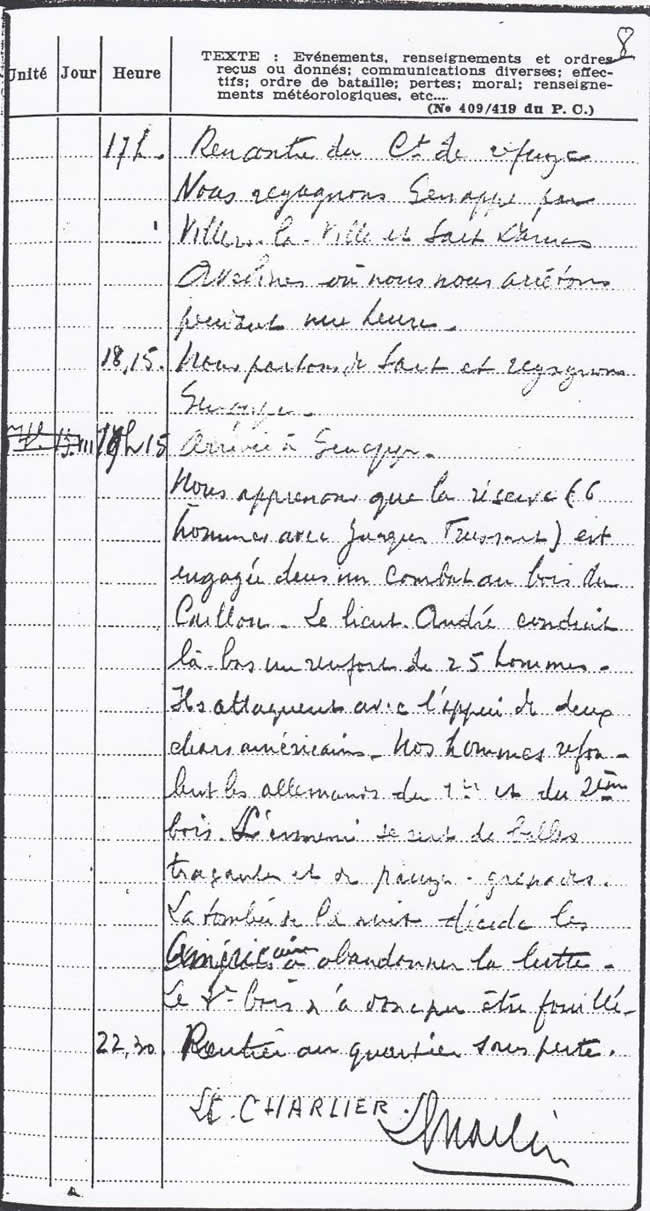 8
Unité Jour Heure
TEXTE : Evénements, renseignements et ordres
reçus ou donnés; communications diverses; effec-
tifs; ordre de bataille; pertes; moral; renseigne-
ments météorologiques, etc....
(No 409/419 du P. C.)
17h. Rencontre du Ct de
Nous regagnons Genappe par
Villers-la-Ville et Sart Dames
Avelines où nous nous arrêtons
pendant une heure.
18,15. Nous partons de Sart et regagnons
Genappe.
19h15 Arrivée à Genappe.
Nous apprenons que la réserve (6
hommes avec Jacques) est
engagée dans un combat au bois du
Caillou. Le lieut. André conduit
là-bas un renfort de 25 hommes.
Ils attaquent avec l'appui de deux
chars américains. Nos hommes refou-
lent les allemands du 1er et du 2ème
bois. L'ennemi se sert de balles
traçantes et de panzer-grenades.
La tombée de la nuit décide les
américains à abandonner la lutte.
Le bois n'a donc pu être fouillé.
22,30. Rentrée au quartier sans perte.
Lt. CHARLIER.